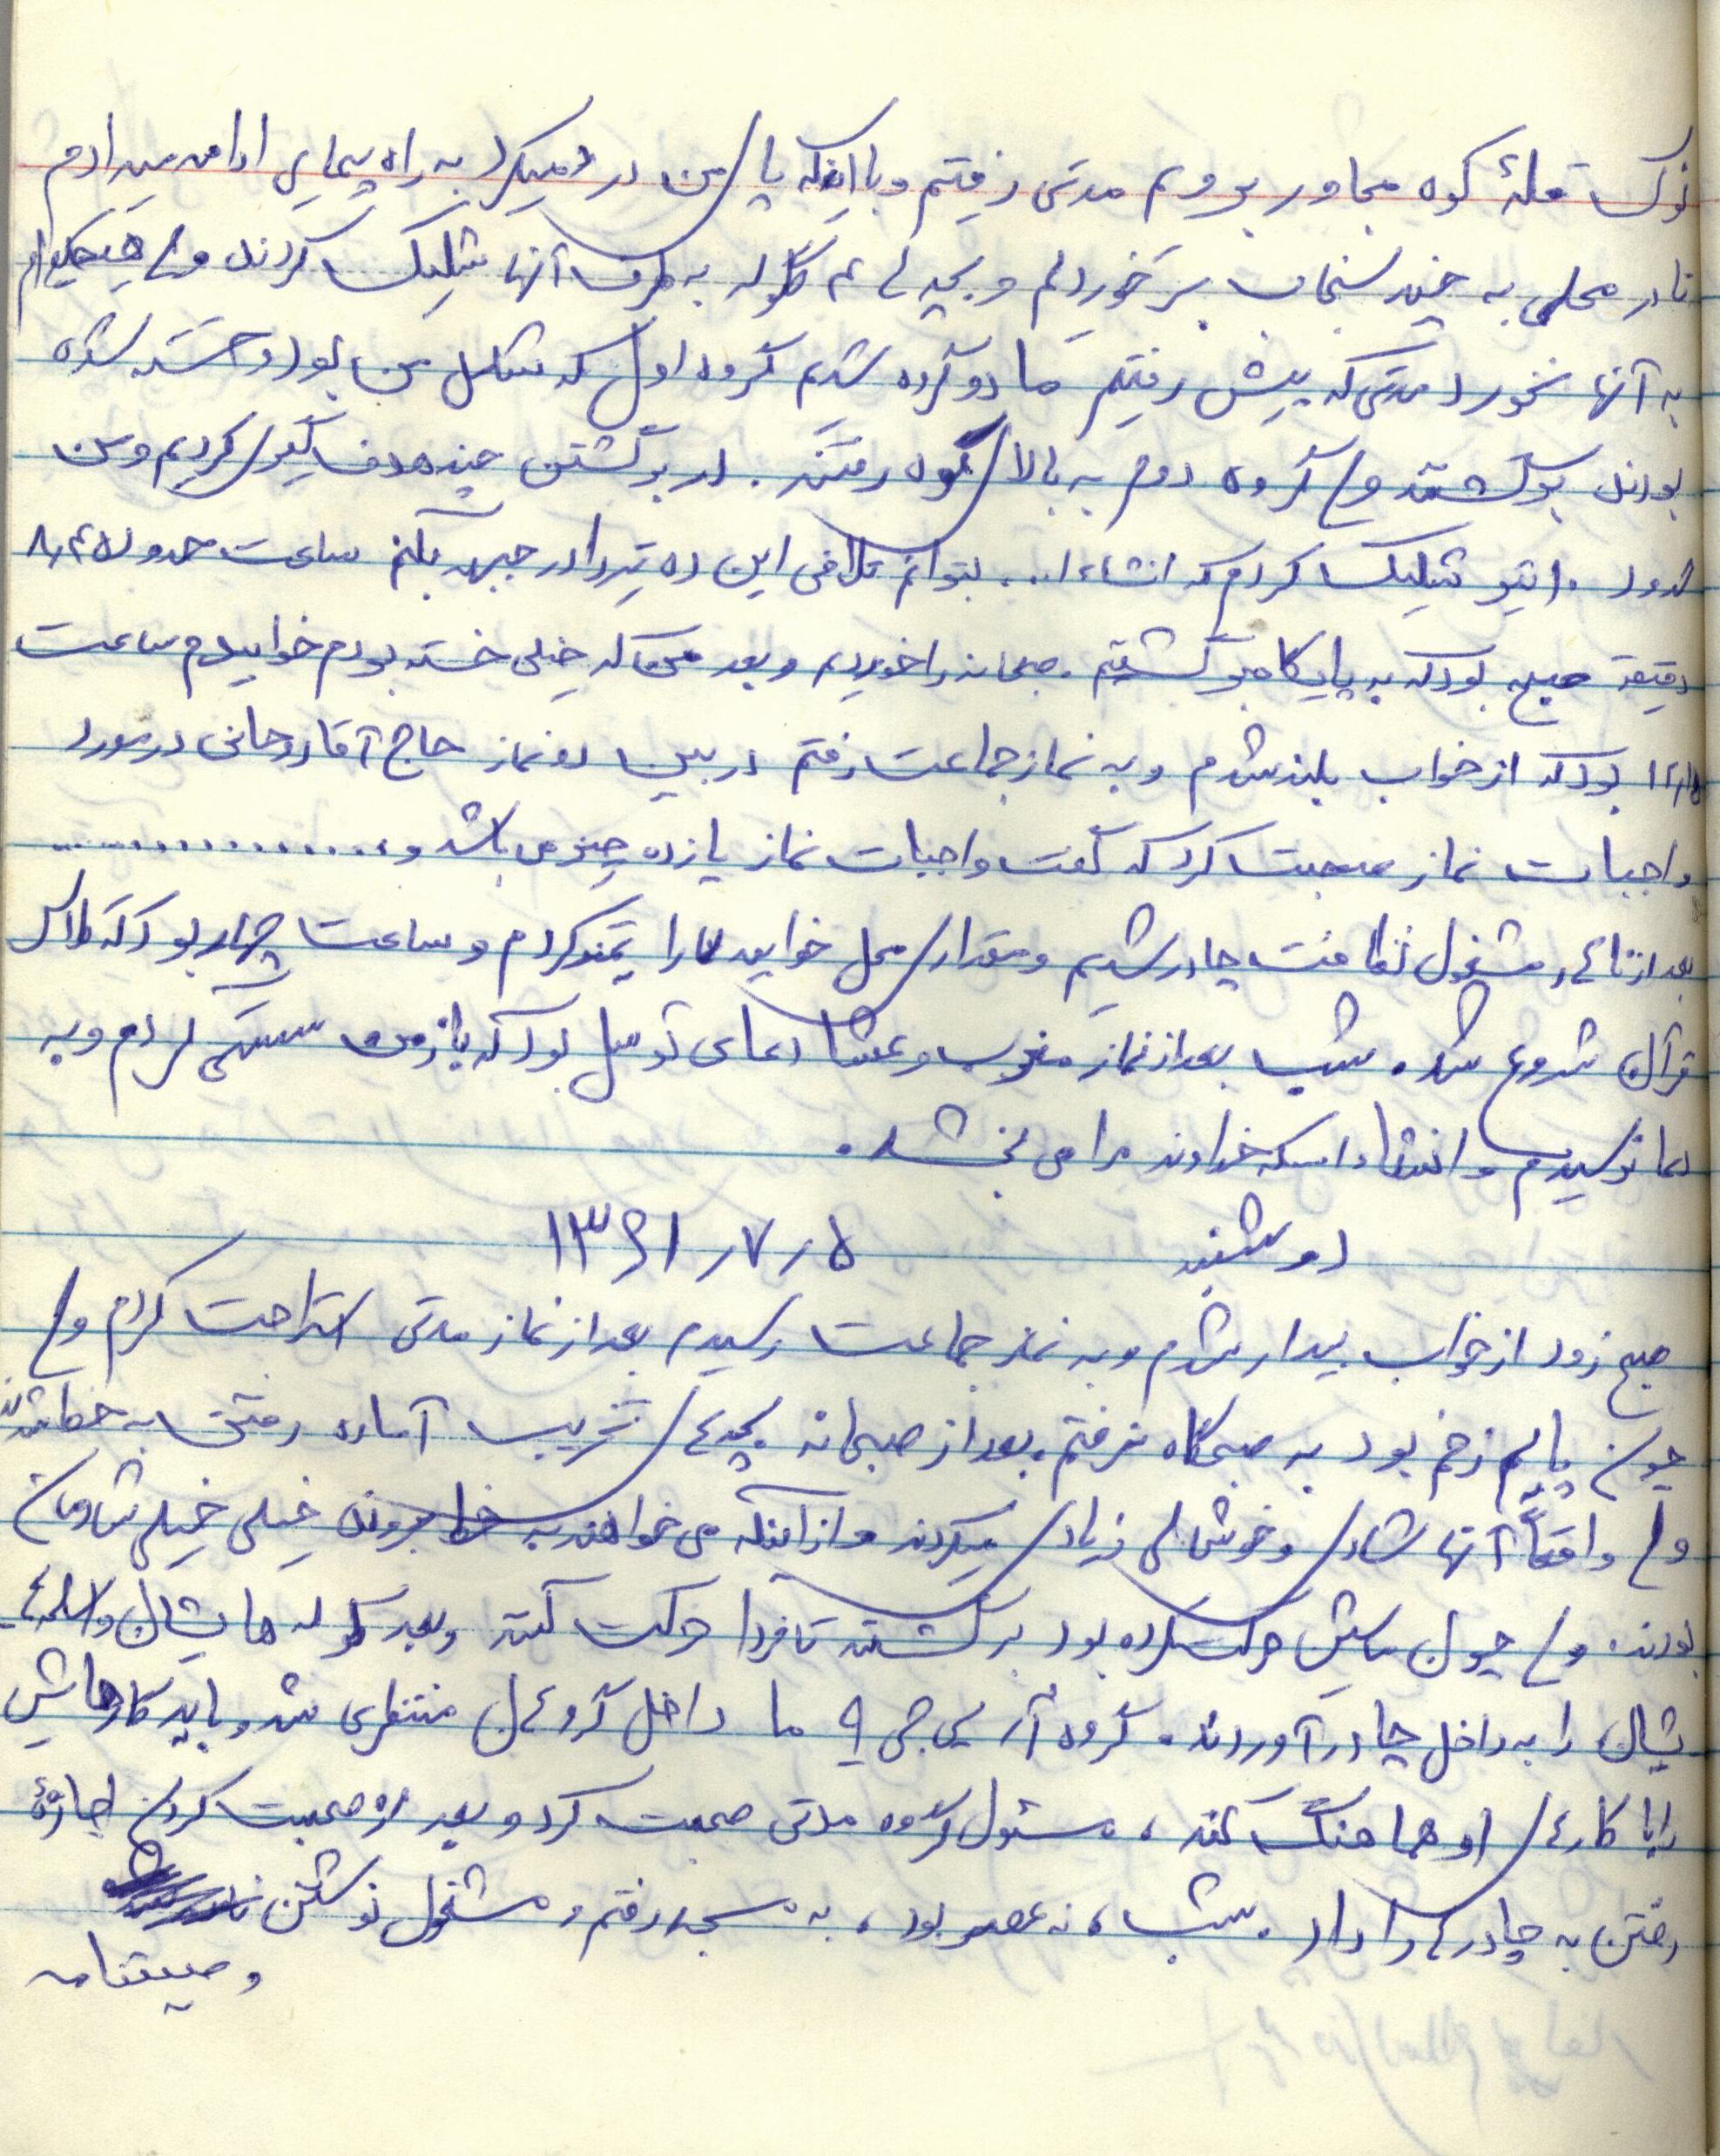 نوک قلهٔ کوه مجاور برویم مدتی رفتیم و با اینکه پای من درد میکرد به راه پیمایی ادامه میدادم
تا در محلی به چند سنجاب برخوردیم و بچه ها گلوله به طرف آنها شلیک کردند ولی هیچکدام
به آنها نخورد مدتی که پیش رفتیم ما دو گروه شدیم گروه اول که شامل من بود و خسته شده
بودند برگشتند ولی گروه دوم به بالای کوه رفتند. در برگشتن چند هدف گیری کردیم و من
حدود ۱۰ تیر شلیک کردم که انشاءا... بتوانم تلافی این ده تیر را در جبهه بکنم ساعت حدود ۸،۴۵
دقیقه صبح بود که به پایگاه برگشتیم. صبحانه را خوردیم و بعد که خیلی خسته بودم خوابیدم ساعت
۱۲،۱۵ بود که از خواب بلند شدم و به نماز جماعت رفتم در بین دو نماز حاج آقا روحانی در مورد
واجبات نماز صحبت کرد که گفت واجبات نماز یازده چیز می باشد و ...............
بعد از مشغول نظافت چادر شدیم و مقداری محل خوابید را تمیز کردم و ساعت چهار بود که کلاس
قرآن شروع شد. شب بعد از نماز مغرب و عشا دعای توسل بود که باز من سستی کردم و به
دعا نرسیدم و انشاءا... که خداوند مرا می بخشد.
دوشنبه ۵ ر ۷ ر ۱۳۶۱
صبح زود از خواب بیدار شدم و به نماز جماعت رسیدم بعد از نماز مدتی استراحت کردم ولی
چون پایم زخم بود به صبحگاه نرفتم. بعد از صبحانه بچه های تخریب آماده رفتن به خط شدند
ولی واقعاً آنها شادی و خوشحالی زیادی میکردند و از اینکه می خواهند به خط بروند خیلی خیلی شادمان
بودند. ولی چون ماشین حرکت کرده بود برگشتند تا فردا حرکت کنند و بعد کوله هایشان و اسلحه های
شان را به داخل چادر آوردند. گروه آر پی جی ۹ ما داخل گروهان منتظری شد و باید کارهایش
را با کارهای او هماهنگ کند، مسئول گروه مدتی صحبت کرد و بعد از صحبت کردن اجازهٔ
رفتن به چادرها را داد. شب، نه عصر بود، به مسجد رفتم و مشغول نوشتن
وصیتنامه